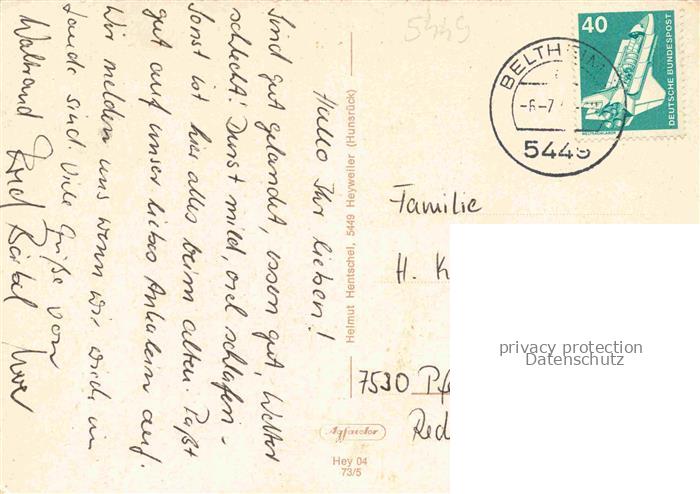 Hallo Ihr Lieben!
Sind gut gelandet, essen gut, Wetter
schlecht! Dunst mild, viel schlafen.
Sonst ist hier alles beim alten. Paßt
gut auf unser liebes auf.
Wir melden uns wenn wir wieder im
Lande sind. Viele Grüße von
Waltraud
5449
Helmut Hentschel, 5449 Heyweiler (Hunsrück)
Agfacolor
Hey 04
73/5
BELTHEIM
-6-7
5449
40
DEUTSCHE BUNDESPOST
WELTRAUMLABOR
Familie
H. K
7530 Pf
Red
privacy protection
Datenschutz